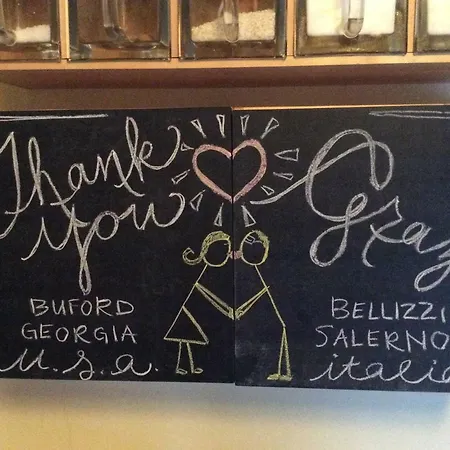 Thank
you
BUFORD
GEORGIA
u.s.a.
Graz
BELLIZZI
SALERNO
italia